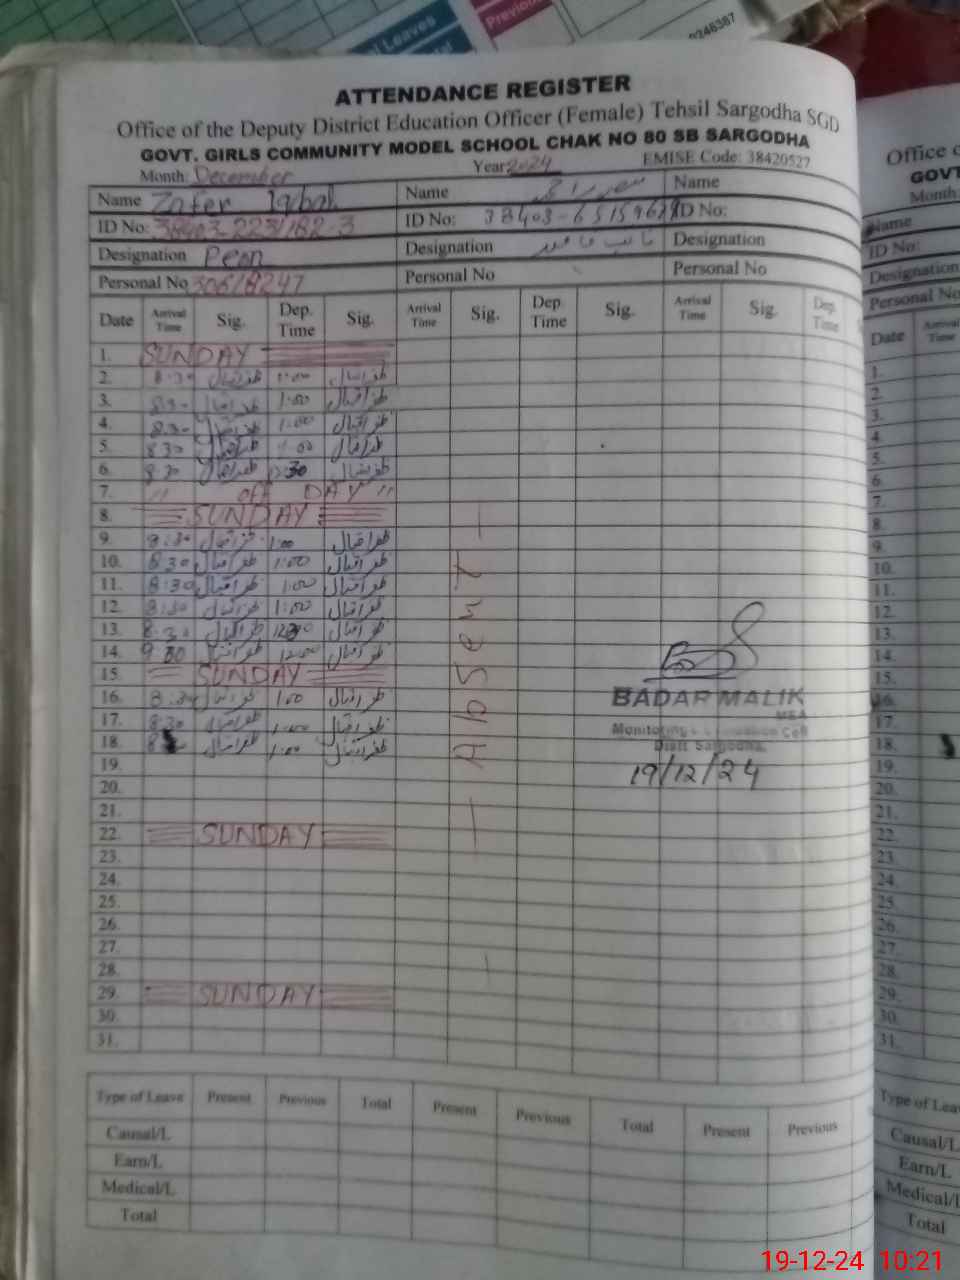 Leaves
Previous
0246387
ATTENDANCE REGISTER
Office of the Deputy District Education Officer (Female) Tehsil Sargodha SGD
GOVT. GIRLS COMMUNITY MODEL SCHOOL CHAK NO 80 SB SARGODHA
Month: December Year 2024 EMISE Code: 38420527
Name Zafer Iqbal Name Name
ID No: ID No: ID No:
Designation Peon Designation نائب قاصد Designation
Personal No Personal No Personal No
Date Arrival Time Sig. Dep. Time Sig. Arrival Time Sig. Dep. Time Sig. Arrival Time Sig. Dep. Time
1. SUNDAY
2. 8:30 ظفر اقبال 1:00 ظفر اقبال
3. 830 ظفر اقبال 1:00 ظفر اقبال
4. 830 ظفر اقبال 1:00 ظفر اقبال
5. 830 ظفر اقبال 1:00 ظفر اقبال
6. 8 30 ظفر اقبال ظفر اقبال
7. " off DAY "
8. SUNDAY
9. 8:30 ظفر اقبال 1:00 ظفر اقبال
10. 8 30 ظفر اقبال 1:00 ظفر اقبال
11. 8:30 ظفر اقبال 1:00 ظفر اقبال
12. 8:30 ظفر اقبال 1:00 ظفر اقبال
13. 8.30 ظفر اقبال ظفر اقبال
14. ظفر اقبال 12:00 ظفر اقبال
15. SUNDAY
16. 8:30 ظفر اقبال 1:00 ظفر اقبال
17. 8:30 ظفر اقبال 1:00 ظفر اقبال
18. ظفر اقبال 1:00 ظفر اقبال
19.
20.
21.
22. SUNDAY
23.
24.
25.
26.
27.
28.
29. SUNDAY
30.
31.
- AbSenT -
BADAR MALIK
MEA
Monitoring & Evaluation Cell
Distt Sargodha.
19/12/24
Type of Leave Present Previous Total Present Previous Total Present Previous
Causal/L
Earn/L
Medical/L
Total
Office
GOVT
Month:
Name
ID No:
Designation
Personal No
Date Arrival Time
1.
2.
3.
4.
5.
6.
7.
8.
9.
10.
11.
12.
13.
14.
15.
16.
17.
18.
19.
20.
21.
22.
23.
24.
25.
26.
27.
28.
29.
30.
31.
Type of Lea
Causal/L
Earn/L
Medical/L
Total
19-12-24 10:21